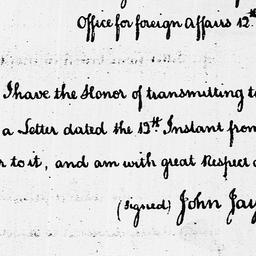 Office for foreign Affairs 12th
I have the Honor of transmitting t
a Letter dated the 15th Instant from
r to it, and am with great Respect
(signed) John Jay